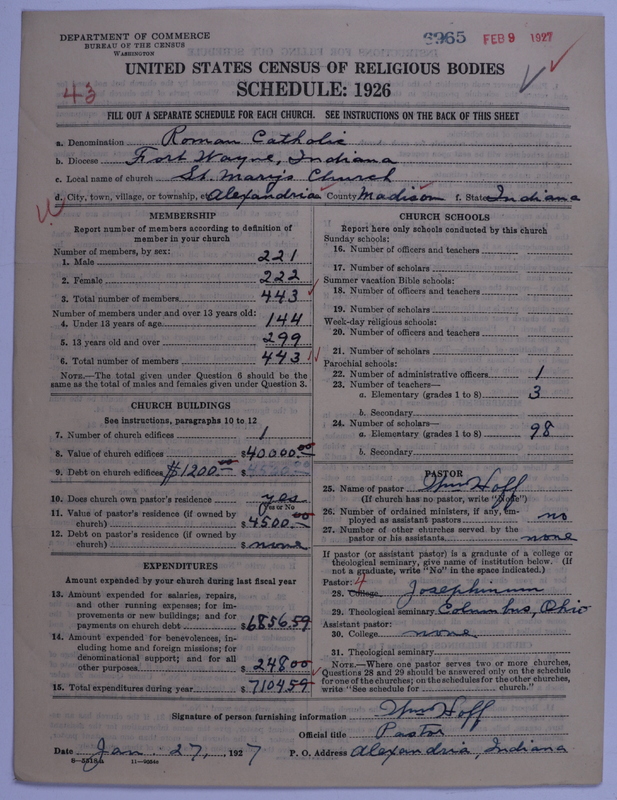 DEPARTMENT OF COMMERCE
BUREAU OF THE CENSUS
WASHINGTON
6965 FEB 9 1927
UNITED STATES CENSUS OF RELIGIOUS BODIES
43
SCHEDULE: 1926
FILL OUT A SEPARATE SCHEDULE FOR EACH CHURCH. SEE INSTRUCTIONS ON THE BACK OF THIS SHEET
a. Denomination Roman Catholic
b. Diocese Fort Wayne, Indiana
c. Local name of church St. Mary's Church
d. City, town, village, or township, e. Alexandria County Madison f. State Indiana
MEMBERSHIP
Report number of members according to definition of
member in your church
Number of members, by sex:
1. Male 221
2. Female 222
3. Total number of members 443
Number of members under and over 13 years old:
4. Under 13 years of age 144
5. 13 years old and over 299
6. Total number of members 443
NOTE.—The total given under Question 6 should be
same as the total of males and females given under Question 3.
CHURCH BUILDINGS
See instructions, paragraphs 10 to 12
7. Number of church edifices 1
8. Value of church edifices $40000.00
9. Debt on church edifices $1200.00 $
10. Does church own pastor's residence yes
Yes or No
11. Value of pastor's residence (if owned by
church) $4500.00
12. Debt on pastor's residence (if owned by
church) $ none
EXPENDITURES
Amount expended by your church during last fiscal year
13. Amount expended for salaries, repairs,
and other running expenses; for im-
provements or new buildings; and for
payments on church debt $6856.59
14. Amount expended for benevolences, in-
cluding home and foreign missions; for
denominational support; and for all
other purposes $248.00
15. Total expenditures during year $7104.59
CHURCH SCHOOLS
Report here only schools conducted by this church
Sunday schools:
16. Number of officers and teachers
17. Number of scholars
Summer vacation Bible schools:
18. Number of officers and teachers
19. Number of scholars
Week-day religious schools:
20. Number of officers and teachers
21. Number of scholars
Parochial schools:
22. Number of administrative officers 1
23. Number of teachers—
a. Elementary (grades 1 to 8) 3
b. Secondary
24. Number of scholars—
a. Elementary (grades 1 to 8) 98
b. Secondary
PASTOR
25. Name of pastor Wm Hoff
(If church has no pastor, write "None")
26. Number of ordained ministers, if any, em-
ployed as assistant pastors no
27. Number of other churches served by the
pastor or his assistants none
If pastor (or assistant pastor) is a graduate of a college or
theological seminary, give name of institution below. (If
not a graduate, write "No" in the space indicated.)
Pastor: 4
28. College Josephinum
29. Theological seminary Columbus, Ohio
Assistant pastor:
30. College none
31. Theological seminary
NOTE.—Where one pastor serves two or more churches,
Questions 28 and 29 should be answered only on the schedule
for one of the churches; on the schedules for the other churches,
write "See schedule for church."
Signature of person furnishing information Wm Hoff
Official title Pastor
Date Jan. 27, 1927 P. O. Address Alexandria, Indiana
11—9054a